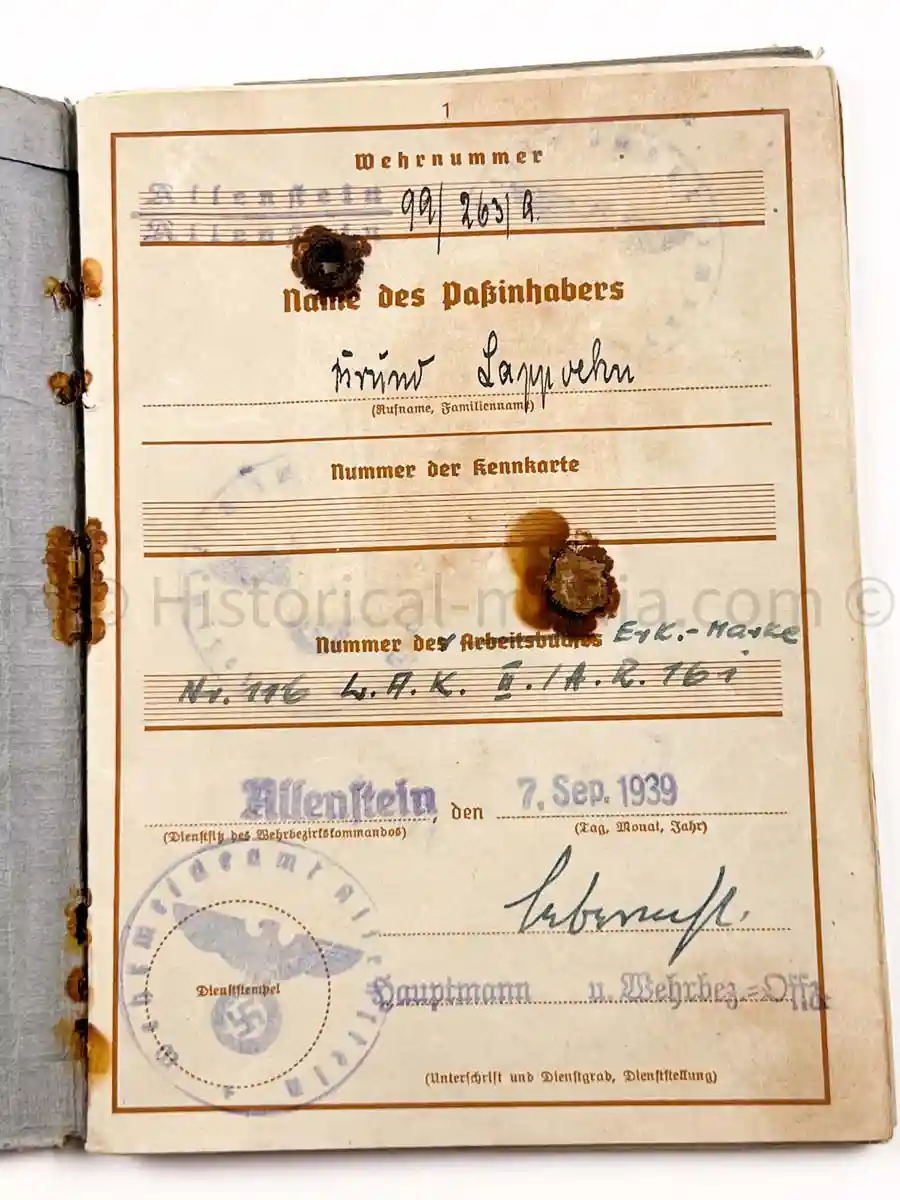 1
Wehrnummer
Allenstein 99/263/
Allenstein
Name des Paßinhabers
Lappoehn
(Rufname, Familienname)
Nummer der Kennkarte
© Historical-media.com ©
Nummer der Arbeitsbuches Erk.-Marke
Nr. 116 L.A.K. II./A.R. 161
Allenstein, den 7. Sep. 1939
(Dienstsitz des Wehrbezirkskommandos) (Tag, Monat, Jahr)
Wehrmeldeamt Allenstein
Dienststempel
Hauptmann u. Wehrbez.=Offz.
(Unterschrift und Dienstgrad, Dienststellung)